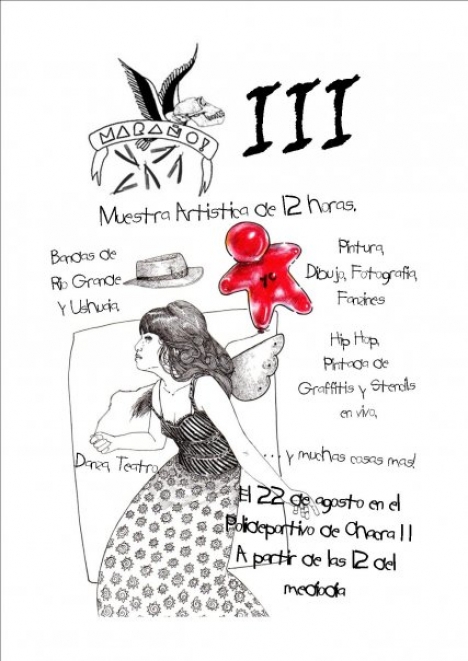 MARAÑOS
III
Muestra Artistica de 12 horas.
Bandas de
Rio Grande
Y Ushuaia,
Pintura,
Dibujo, Fotografia,
Fanzines
yo
Hip Hop,
Pintada de
Graffitis y Stencils
en vivo,
Danza, Teatro
...y muchas cosas mas!
El 22 de agosto en el
Polideportivo de Chacra II
A partir de las 12 del
mediodia